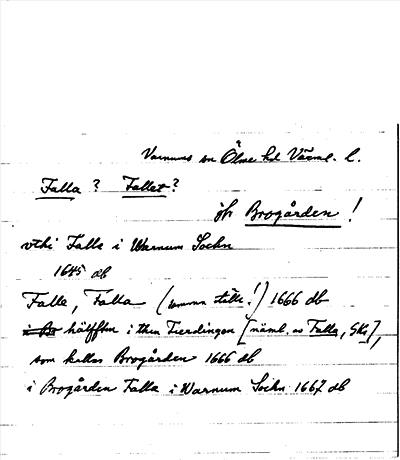 Varnums sn Ölme hd Värml. l.
Falla? Fallet?
jfr Brogården!
vthi Falle i Warnum Sochn
1645 db
Falle, Falla (samma ställe!) 1666 db
hälfften i then Fierdingen [näml. av Falla, SKs],
som kallas Brogården 1666 db
i Brogården Falla i Warnum Sochn 1667 db